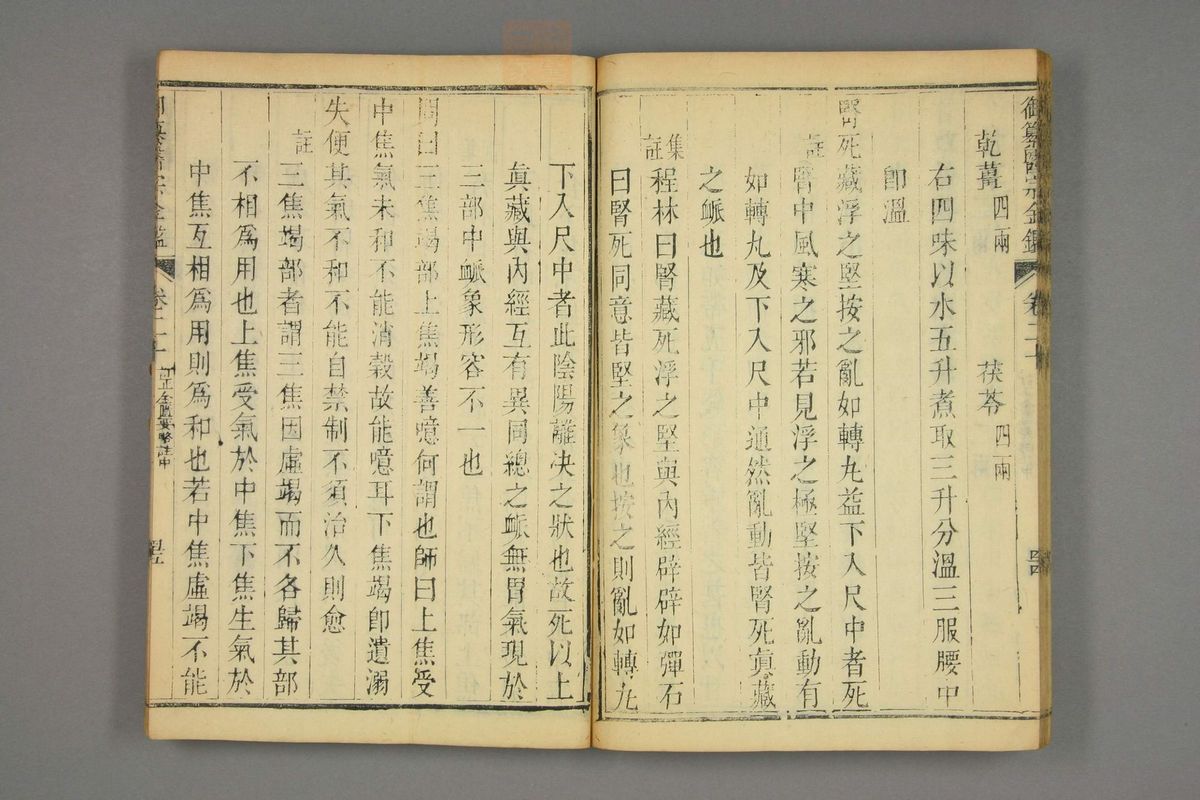 御纂醫宗金鑑 卷二十
乾薑四兩 茯苓四兩
右四味以水五升煮取三升分溫三服腰中
卽溫
腎死藏浮之堅按之亂如轉丸益下入尺中者死
註 腎中風寒之邪若見浮之極堅按之亂動有
如轉丸及下入尺中通然亂動皆腎死眞藏
之衇也
集註 程林曰腎藏死浮之堅與內經辟辟如彈石
曰腎死同意皆堅之象也按之則亂如轉丸
下入尺中者此陰陽離决之狀也故死以上
眞藏與內經互有異同總之衇無胃氣現於
三部中衇象形容不一也
問曰三焦竭部上焦竭善噫何謂也師曰上焦受
中焦氣未和不能消穀故能噫耳下焦竭卽遺溺
失便其氣不和不能自禁制不須治久則愈
註 三焦竭部者謂三焦因虛竭而不各歸其部
不相爲用也上焦受氣於中焦下焦生氣於
中焦互相爲用則爲和也若中焦虛竭不能
御纂醫宗金鑑 卷二十 訂正金匱要略註中